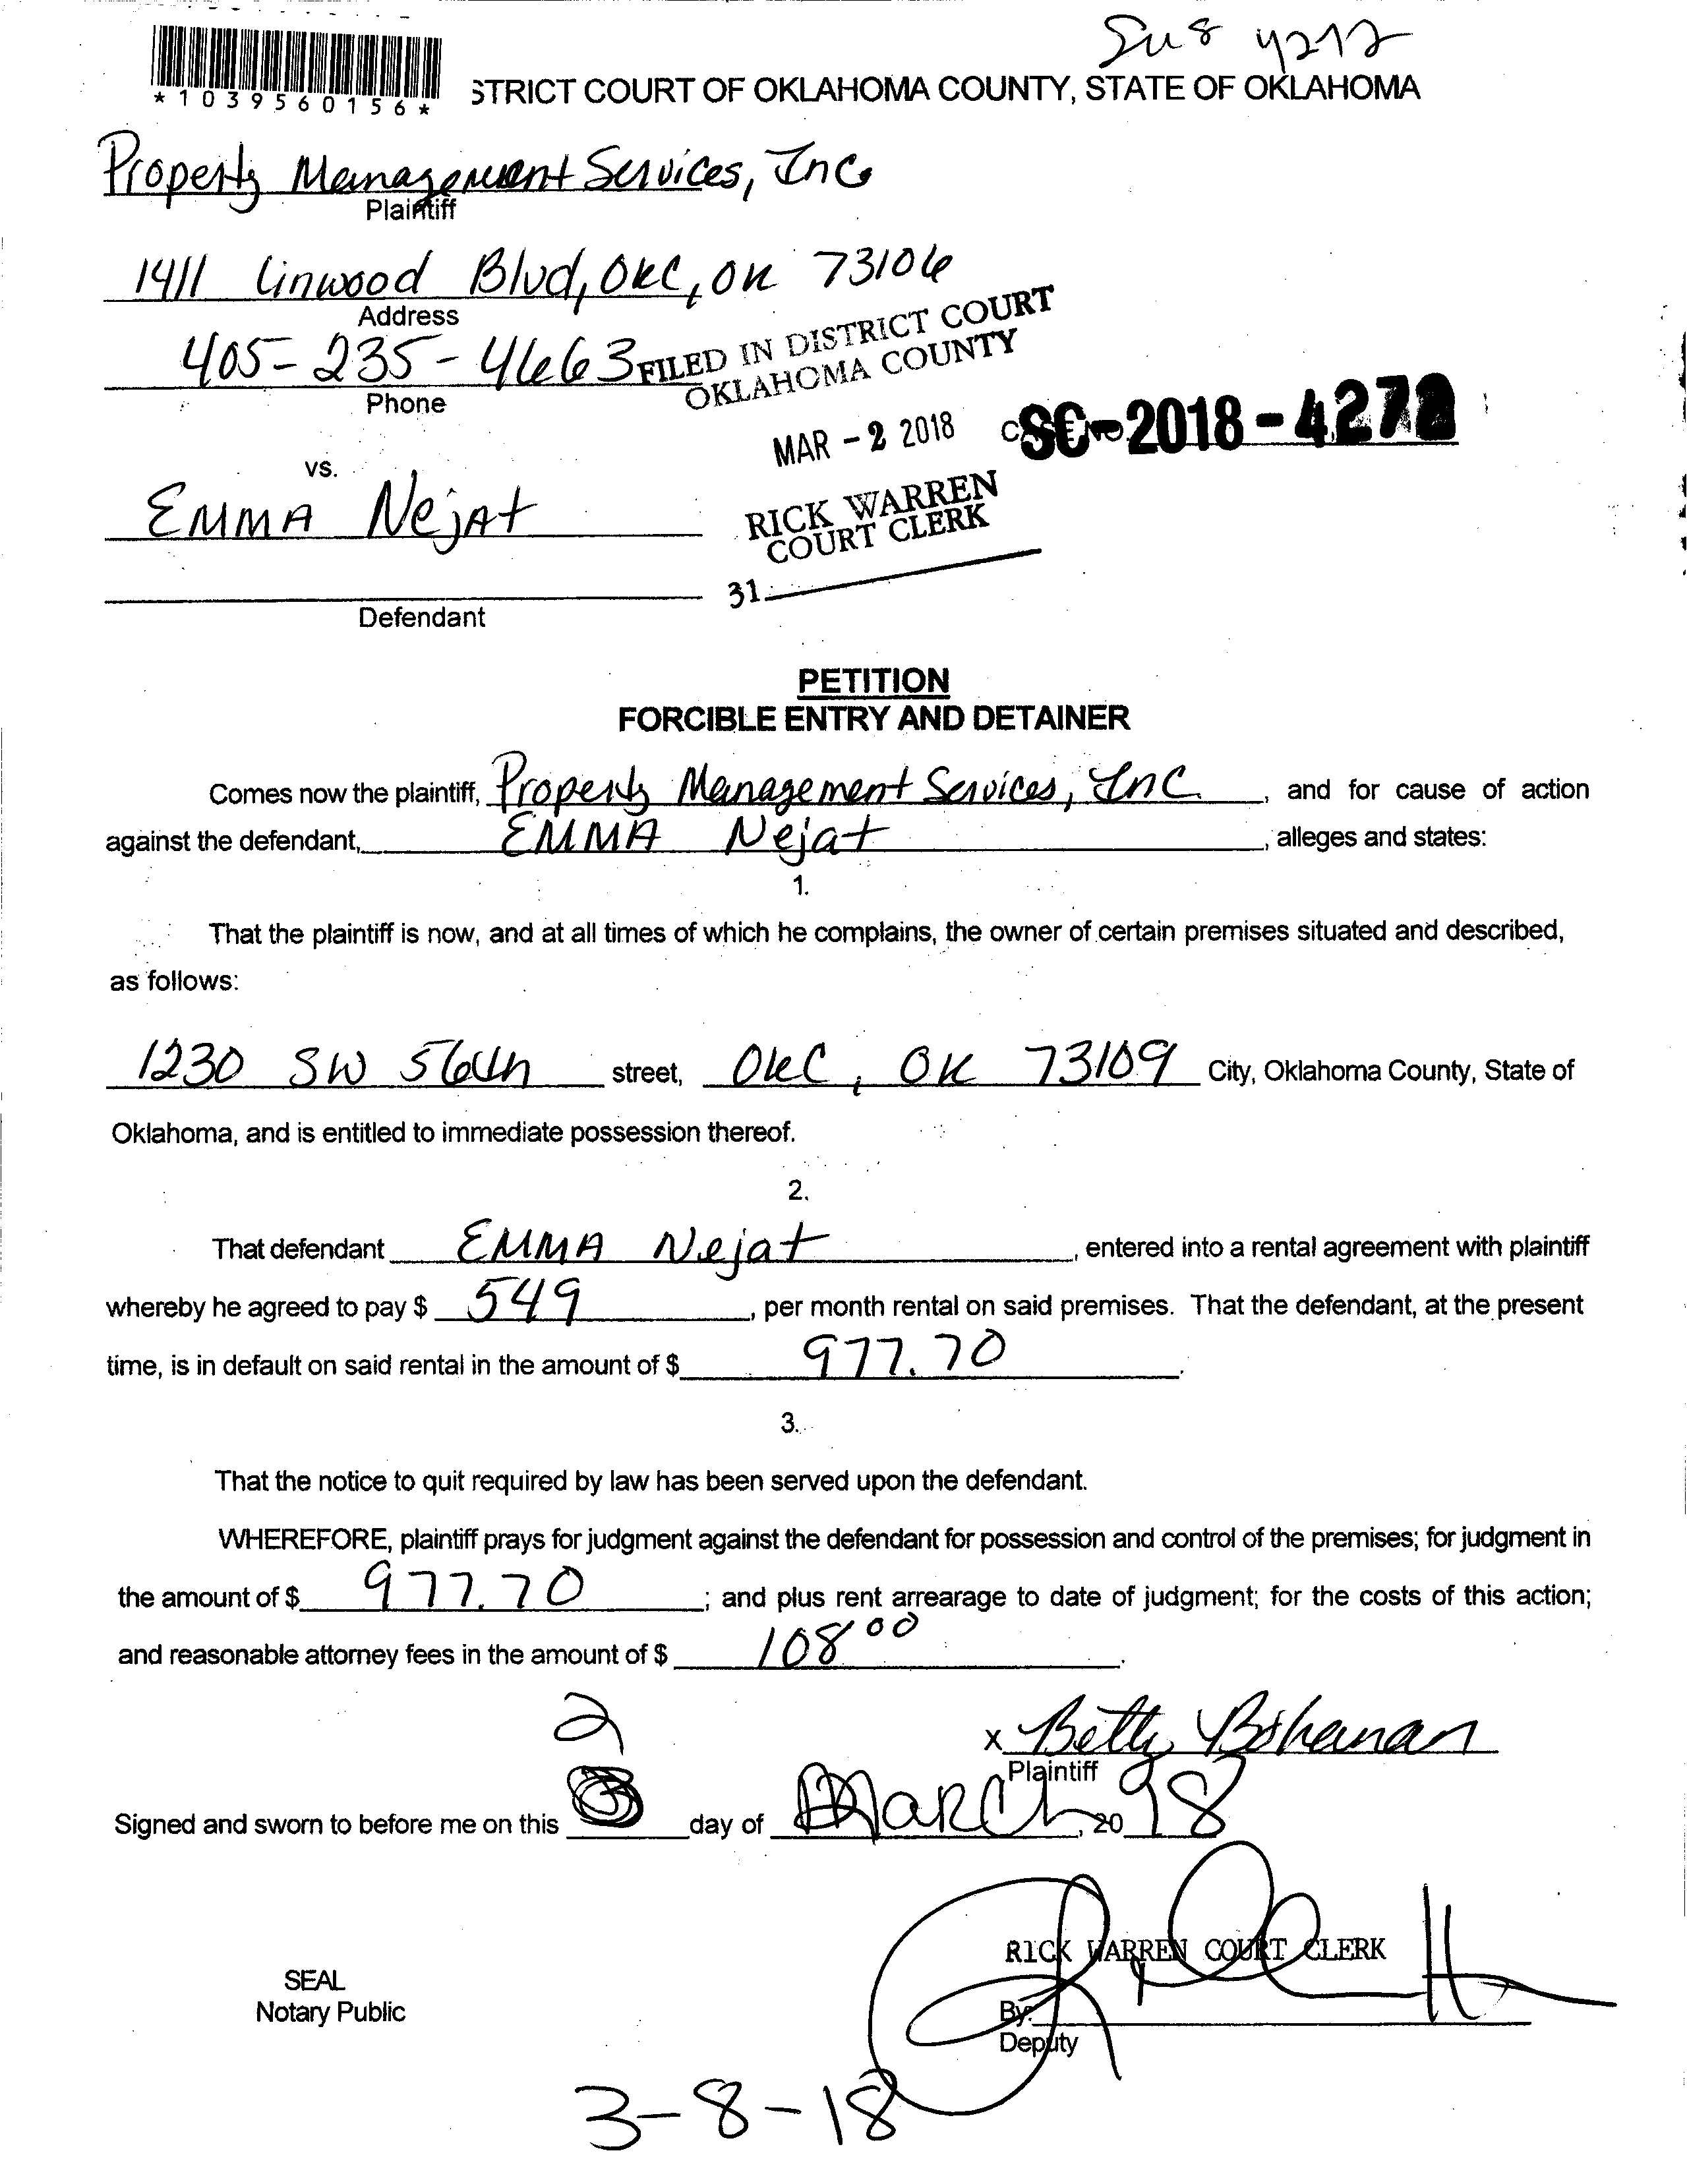 *1039560156*
STRICT COURT OF OKLAHOMA COUNTY, STATE OF OKLAHOMA
Property Management Services, Inc.
Plaintiff
1411 Linwood Blvd, OKC, OK 73106
Address
405-235-4663
Phone
FILED IN DISTRICT COURT
OKLAHOMA COUNTY
MAR - 2 2018
SC-2018-4272
vs.
EMMA Nejat
RICK WARREN
COURT CLERK
31
Defendant
PETITION
FORCIBLE ENTRY AND DETAINER
Comes now the plaintiff, Property Management Services, Inc. , and for cause of action
against the defendant, EMMA Nejat , alleges and states:
1.
That the plaintiff is now, and at all times of which he complains, the owner of certain premises situated and described,
as follows:
1230 SW 56th street, OKC, OK 73109 City, Oklahoma County, State of
Oklahoma, and is entitled to immediate possession thereof.
2.
That defendant EMMA Nejat , entered into a rental agreement with plaintiff
whereby he agreed to pay $ 549 , per month rental on said premises. That the defendant, at the present
time, is in default on said rental in the amount of $ 977.70 .
3.
That the notice to quit required by law has been served upon the defendant.
WHEREFORE, plaintiff prays for judgment against the defendant for possession and control of the premises; for judgment in
the amount of $ 977.70 ; and plus rent arrearage to date of judgment; for the costs of this action;
and reasonable attorney fees in the amount of $ 108.00 .
x Betty Bohanan
Plaintiff
2
Signed and sworn to before me on this day of March , 20 18
RICK WARREN COURT CLERK
SEAL
Notary Public
By:
Deputy
3-8-18